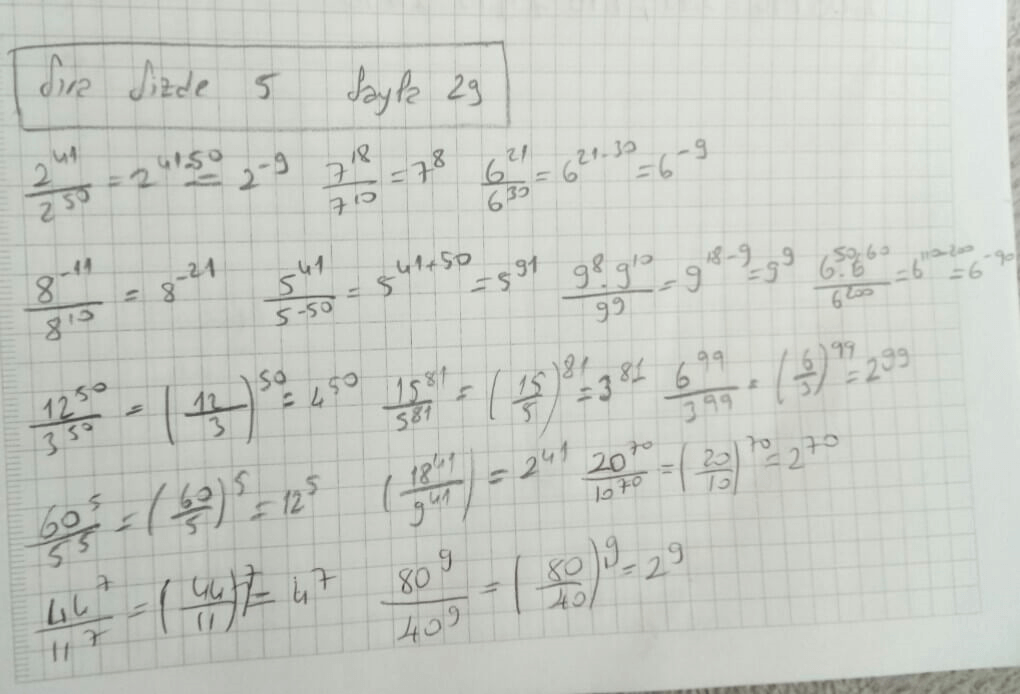 Sıra Sizde 5 Sayfa 29
2^41/2^50 = 2^41-50 = 2^-9 7^18/7^10 = 7^8 6^21/6^30 = 6^21-30 = 6^-9
8^-11/8^10 = 8^-21 5^41/5^-50 = 5^41+50 = 5^91 9^8.9^10/9^9 = 9^18-9 = 9^9 6^50.6^60/6^200 = 6^110-200 = 6^-90
12^50/3^50 = (12/3)^50 = 4^50 15^81/5^81 = (15/5)^81 = 3^81 6^99/3^99 = (6/3)^99 = 2^99
60^5/5^5 = (60/5)^5 = 12^5 (18^41/9^41) = 2^41 20^70/10^70 = (20/10)^70 = 2^70
44^7/11^7 = (44/11)^7 = 4^7 80^9/40^9 = (80/40)^9 = 2^9